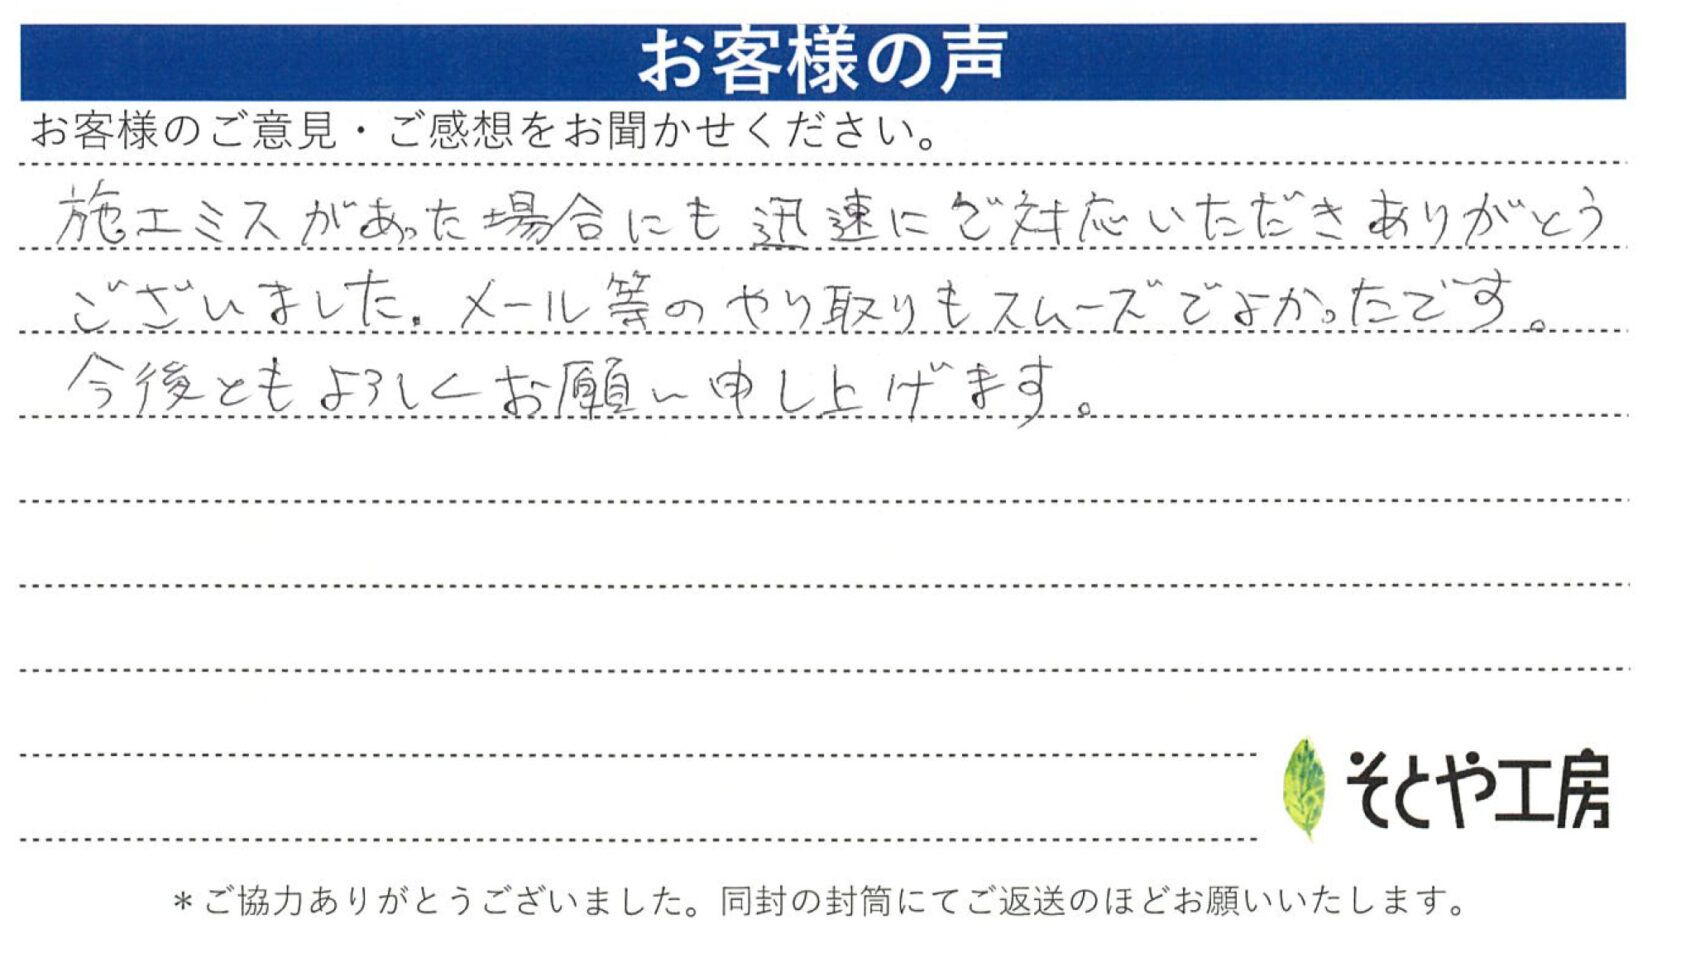 お客様の声
お客様のご意見・ご感想をお聞かせください。
施工ミスがあった場合にも迅速にご対応いただきありがとう
ございました。メール等のやり取りもスムーズでよかったです。
今後ともよろしくお願い申し上げます。
そとや工房
＊ご協力ありがとうございました。同封の封筒にてご返送のほどお願いいたします。